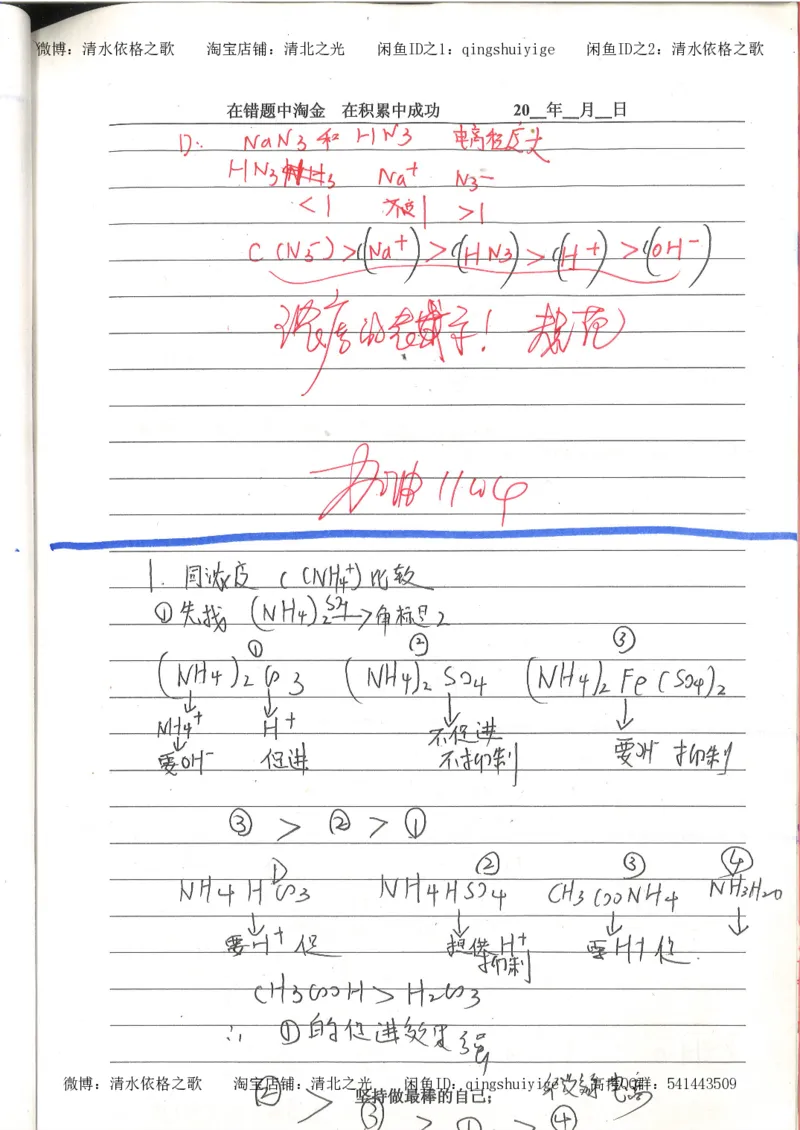 微博：清水依格之歌 淘宝店铺：清北之光 闲鱼ID之1：qingshuiyige 闲鱼ID之2：清水依格之歌
在错题中淘金 在积累中成功 20__年__月__日
D: NaN3 和 HN3 电离程度大
HN3 Na+ N3-
<1 不变1 >1
C(N3-)>c(Na+)>c(HN3)>c(H+)>c(OH-)
浓度的老样子！规范
加油
1. 同浓度 C(NH4+)比较
①先找 (NH4)2SO4 → 角标是2
① ② ③
(NH4)2CO3 (NH4)2SO4 (NH4)2Fe(SO4)2
↓ ↓ ↓ ↓
NH4+ H+ 不促进
↓
要OH- 促进 不抑制 要OH- 抑制
③ > ② > ①
① ② ③ ④
NH4HCO3 NH4HSO4 CH3COONH4 NH3H2O
↓ ↓ ↓ ↓
要H+ 促 提供H+ 要H+ 促
抑制
CH3COOH > H2CO3
∴ ①的促进效果强
微博：清水依格之歌 淘宝店铺：清北之光 闲鱼ID：qingshuiyige 高捞QQ群：541443509
坚持做最棒的自己；
② > ③ > ① > ④